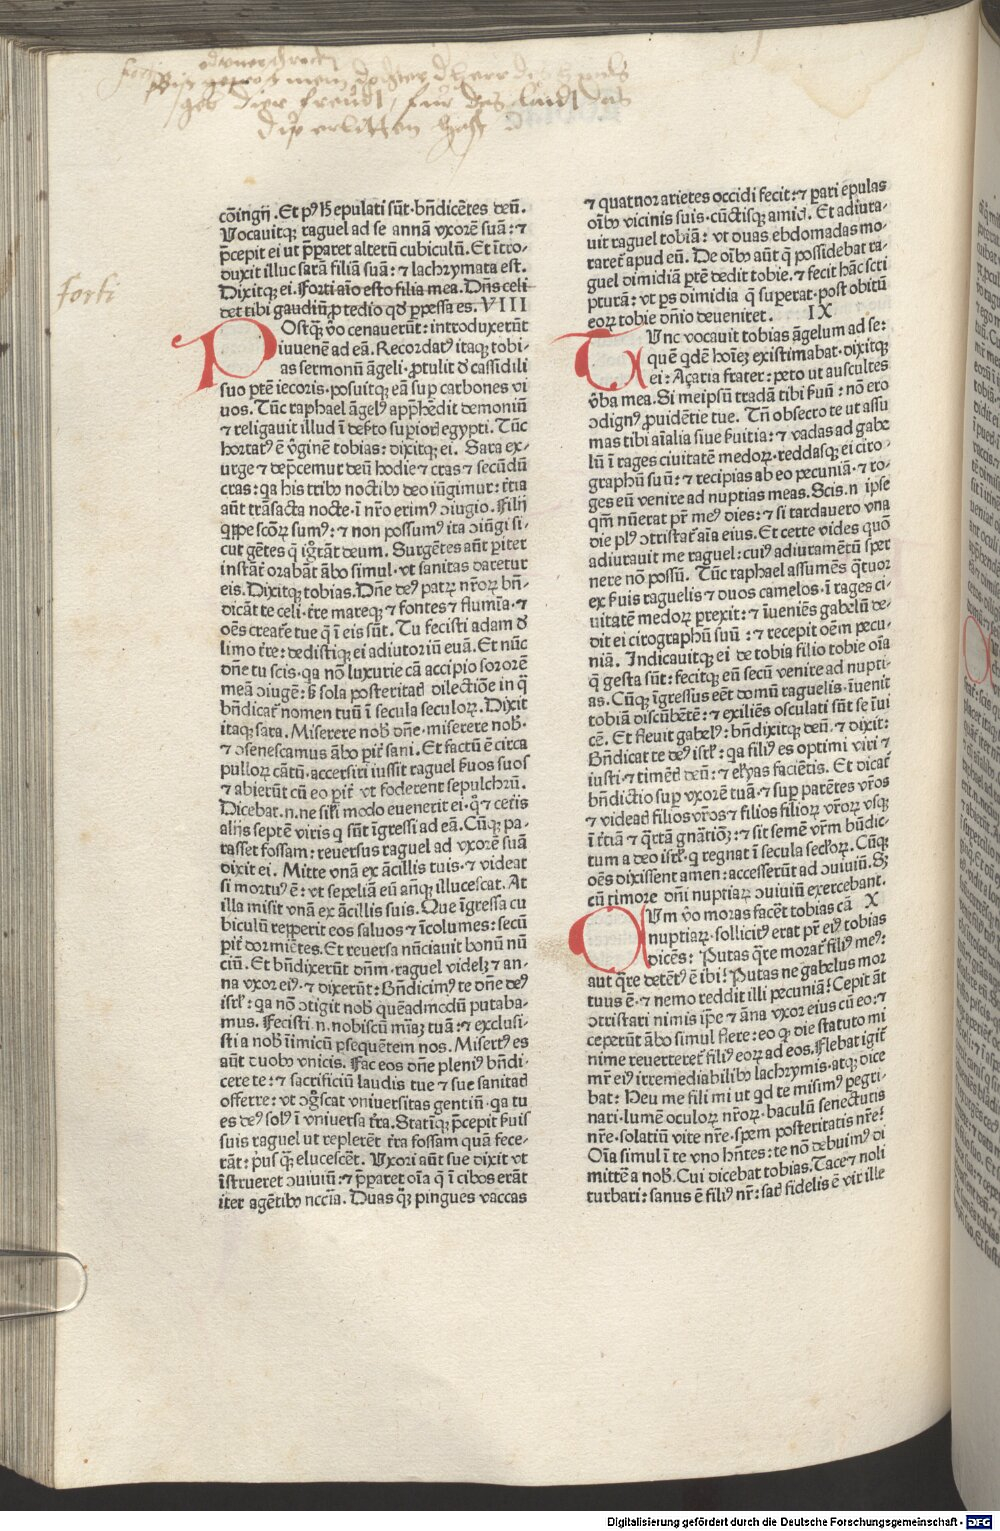 forti
conīngij. Et pꝰ ħ epulati sūt·bn̄dicētes deū.
Vocauitqꝫ raguel ad se annā vxorē suā: ⁊
p̄cepit ei ut p̄pararet alterū cubiculū. Et ītro-
duxit illuc sarā filiā suā: ⁊ lachrymata est.
Dixitqꝫ ei. Forti aīo esto filia mea. Dn̄s celi
det tibi gaudiū ꝓ tedio qd̄ ꝑpessa es. VIII
POstqꝫ v̄o cenauerūt: introduxerūt
iuuenē ad eā. Recordatꝰ itaqꝫ tobi-
as sermonū āgeli·ꝓtulit d̄ cassidili
suo ꝑtē iecoris·posuitqꝫ eā suꝑ carbones vi
uos. Tūc raphael āgelꝰ app̄hēdit demoniū
⁊ religauit illud ī deẜto suꝑioris egypti. Tūc
hortatꝰ ē v̄ginē tobias: dixitqꝫ ei. Sara ex-
urge ⁊ dep̄cemur deū hodie ⁊ cras ⁊ secūdū
cras: qa his tribꝰ noctibꝰ deo iūgimur: t̄tia
aūt trāsacta nocte·ī nr̄o erimꝰ ꝯiugio. Filij
qꝑpe scōꝝ sumꝰ: ⁊ non possumꝰ ita ꝯiūgi si-
cut gētes q̄ igr̄āt deum. Surgētes aūt ꝑiter
instāt̄ orabāt ābo simul·vt sanitas daretur
eis. Dixitqꝫ tobias. Dn̄e deꝰ patꝝ nr̄oꝝ bn̄-
dicāt te celi·t̄re mareqꝫ ⁊ fontes ⁊ flumīa·⁊
oēs creat̄e tue q̄ ī eis sūt. Tu fecisti adam d̄
limo t̄re: dedistiqꝫ ei adiutoriū euā. Et nūc
dn̄e tu scis·qa nō luxurie cā accipio sororē
meā ꝯiugē: ẜ sola posteritatis dilectiōe in q̄
bn̄dicat̄ nomen tuū ī secula seculoꝝ. Dixit
itaqꝫ sara. Miserere nob̄ dn̄e·miserere nob̄·
⁊ ꝯsenescamus ābo ꝑit̄ sani. Et factū ē circa
pulloꝝ cātū·accersiri iussit raguel ẜuos suos
⁊ abierūt cū eo ꝑit̄ vt foderent sepulchrū.
Dicebat.n.ne sil̄i modo euenerit ei·q̄ ⁊ ceteris
alijs septē viris q sūt īgressi ad eā. Cūqꝫ pa-
rasset fossam: reuersus raguel ad vxorē suā
dixit ei. Mitte vnā ex ācillis tuis·⁊ videat
si mortuꝰ ē: vt sepeliā eū āñqꝫ illucescat. At
illa misit vnā ex ācillis suis. Que īgressa cu
biculū reꝑerit eos saluos ⁊ īcolumes: secū
ꝑit̄ dormiētes. Et reuersa nūciauit bonū nū
ciū. Et bn̄dixerūt dn̄m·raguel videlꝫ ⁊ an-
na vxor eiꝰ·⁊ dixerūt: Bn̄dicimꝰ te dn̄e deꝰ
isrl̄: qa nō ꝯtigit nob̄ quēadmodū putaba-
mus. Fecisti.n.nobiscū mīaꝫ tuā: ⁊ exclusi-
sti a nob̄ īimicū ꝑsequētem nos. Misertꝰ es
aūt duobꝰ vnicis. Fac eos dn̄e pleniꝰ bn̄di-
cere te: ⁊ sacrificiū laudis tue ⁊ sue sanitatis
offerre: vt ꝯgscat vniuersitas gentiū·qa tu
es deꝰ solꝰ ī vniuersa t̄ra. Statīqꝫ p̄cepit ẜuis
suis raguel ut replerēt t̄ra fossam quā fece-
rāt: pꝰus qꝫ elucescēt. Vxori aūt sue dixit vt
īstrueret ꝯuiuiū: ⁊ p̄pararet oīa q̄ ī cibos erāt
iter agētibꝰ nccīa. Duas qꝫ pingues vaccas
⁊ quatuor arietes occidi fecit: ⁊ pari epulas
oībꝰ vicinis suis·cūctisqꝫ amicis. Et adiura-
uit raguel tobiā: vt duas ebdomadas mo-
raret̄ apud eū. De oībꝰ aūt q̄ possidebat ra-
guel dimidiā ꝑtē dedit tobie·⁊ fecit hāc scri
pturā: vt ꝑs dimidia q̄ suꝑerat·post obitū
eoꝝ tobie dn̄io deueniret. IX
TVnc vocauit tobias āgelum ad se:
quē qdē hoīeꝫ existimabat·dixitqꝫ
ei: Açaria frater: peto ut auscultes
v̄ba mea. Si meipsū tradā tibi ẜuū: nō ero
ꝯdignꝰ ꝓuidētie tue. Tn̄ obsecro te ut assu
mas tibi aīalia siue ẜuitia: ⁊ vadas ad gabe
lū ī rages ciuitatē medoꝝ·reddasqꝫ ei ciro-
graphū suū: ⁊ recipias ab eo pecuniā·⁊ ro-
ges eū venire ad nuptias meas. Scis.n ipse
qm̄ nūerat pr̄ meꝰ dies: ⁊ si tardauero vna
die plꝰ ꝯtristat̄ aīa eius. Et certe vides quō
adiurauit me raguel: cuiꝰ adiuramētū sper
nere nō possū. Tūc raphael assumēs q̄tuor
ex ẜuis raguelis ⁊ duos camelos·ī rages ci-
uitatē medoꝝ ꝑrexit: ⁊ īueniēs gabelū de-
dit ei cirographū suū: ⁊ recepit oēm pecu-
niā. Indicauitqꝫ ei de tobia filio tobie oīa
q̄ gesta sūt: fecitqꝫ eū secū venire ad nupti-
as. Cūqꝫ īgressus eēt domū raguelis·īuenit
tobiā discūbētē: ⁊ exiliēs osculati sūt se īui
cē. Et fleuit gabelꝰ: bn̄dixitqꝫ deū·⁊ dixit:
Bn̄dicat te deꝰ isrl̄: qa filiꝰ es optimi viri ⁊
iusti·⁊ timētis deū: ⁊ elēyas faciētis. Et dicat̄
bn̄dictio suꝑ vxorē tuā·⁊ suꝑ parētes vr̄os
⁊ videatis filios vr̄os ⁊ filios filioꝝ vr̄oꝝ vsqꝫ
ī t̄tiā ⁊ q̄rtā gnātiōꝫ: ⁊ sit semē vr̄m bn̄dic-
tum a deo isrl̄·q regnat ī secula secl̄oꝝ. Cūqꝫ
oēs dixissent amen: accesserūt ad ꝯuiuiū. Sꝫ
cū timore dn̄i nuptiaꝝ ꝯuiuiū exercebant.
CVm v̄o moras facēt tobias cā X
nuptiaꝝ·sollicitꝰ erat pr̄ eiꝰ tobias
dicēs: Putas q̄re morat̄ filiꝰ meꝰ:
aut q̄re detētꝰ ē ibi? Putas ne gabelus mor
tuus ē·⁊ nemo reddit illi pecuniā? Cepit āt
ꝯtristari nimis ip̄e ⁊ āna vxor eius cū eo: ⁊
ceperūt ābo simul flere: eo qꝫ die statuto mi
nime reuerteret̄ filiꝰ eoꝝ ad eos. Flebat igit̄
mr̄ eiꝰ irremediabilibꝰ lachrymis·atqꝫ dice
bat: Heu me fili mi ut qd te misimꝰ ꝑegri-
nari·lumē oculoꝝ nr̄oꝝ·baculū senectutis
nr̄e·solatiū vite nr̄e·spem posteritatis nr̄e?
Oīa simul ī te vno hn̄tes: te nō debuimꝰ di
mittē a nob̄. Cui dicebat tobias. Tace ⁊ noli
turbari: sanus ē filiꝰ nr̄: satis fidelis ē vir ille
Digitalisierung gefördert durch die Deutsche Forschungsgemeinschaft - DFG